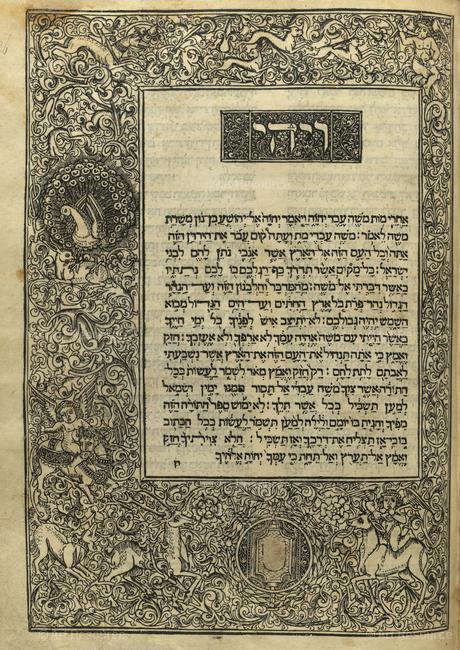 ויהי
אחרי מות משה עבד יהוה ויאמר יהוה אל־יהושע בן־נון משרת
משה לאמר: משה עבדי מת ועתה קום עבר את־הירדן הזה
אתה וכל העם הזה אל־הארץ אשר אנכי נתן להם לבני
ישראל: כל־מקום אשר תדרך כף רגלכם בו לכם נתתיו
כאשר דברתי אל משה: מהמדבר והלבנון הזה ועד־הנהר
הגדול נהר פרת כל ארץ החתים ועד־הים הגדול מבוא
השמש יהיה גבולכם: לא־יתיצב איש לפניך כל ימי חייך
כאשר הייתי עם־משה אהיה עמך לא ארפך ולא אעזבך: חזק
ואמץ כי אתה תנחיל את־העם הזה את־הארץ אשר נשבעתי
לאבתם לתת להם: רק חזק ואמץ מאד לשמר לעשות ככל־
התורה אשר צוך משה עבדי אל־תסור ממנו ימין ושמאל
למען תשכיל בכל אשר תלך: לא־ימוש ספר התורה הזה
מפיך והגית בו יומם ולילה למען תשמר לעשות ככל הכתוב
בו כי־אז תצליח את־דרכך ואז תשכיל: הלא צויתיך חזק
ואמץ אל־תערץ ואל־תחת כי עמך יהוה אלהיך